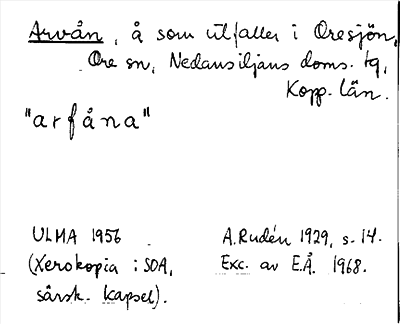 Arvån, å som utfaller i Oresjön,
Ore sn, Nedansiljans doms. tg,
Kopp. län.
"arfåna"
ULMA 1956 A. Rudén 1929, s. 14.
(Xerokopia i SOA, Exc. av E.Å. 1968.
särsk. kapsel).